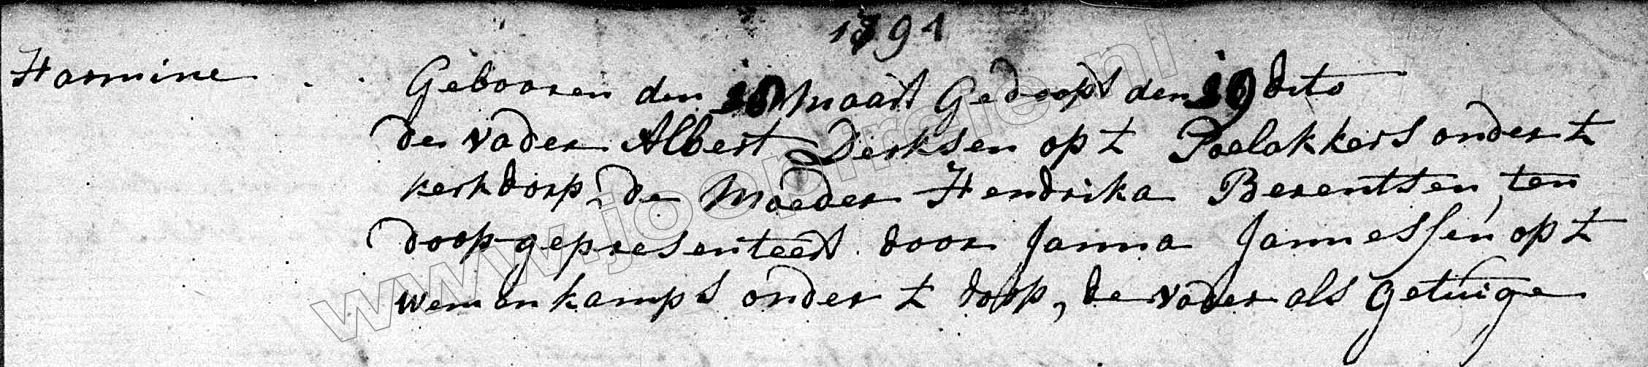 1791
Harmine
Gebooren den 18 maart Gedoopt den 19 dito
de vader Albert Derksen op t Poelakkers onder t
kerkdorp, de Moeder Hendrika Berentsen, ten
doop gepresenteert door Janna Jannessen op t
wemenkamps onder t dorp, de vader als getuige
www.joenrolie.nl